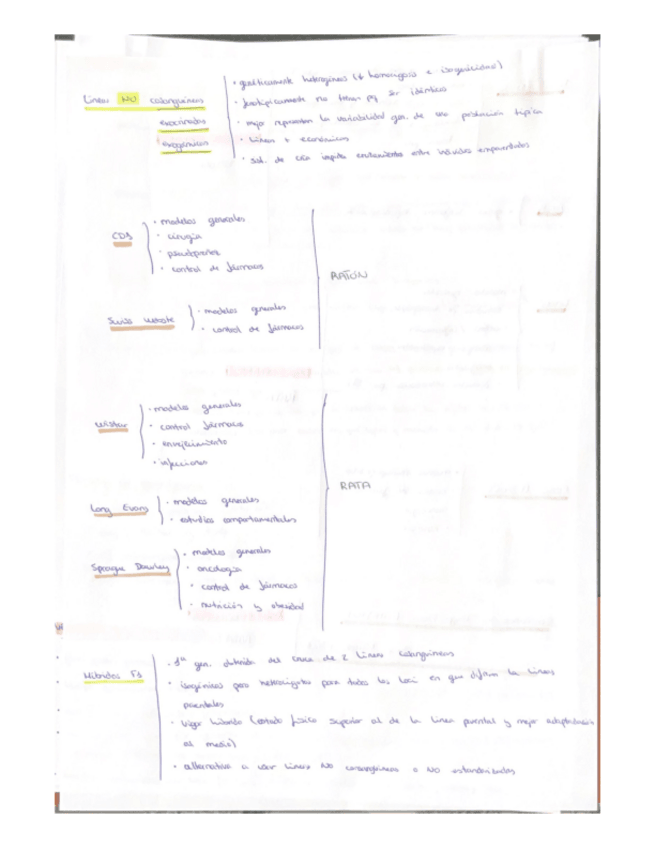 Líneas NO consanguíneas
exocriadas
exogénicas
· genéticamente heterogéneas (≠ homocigosis e isogenicidad)
· fenotípicamente no tienen pq ser idénticos
· mejor representan la variabilidad gen. de una población típica
· Líneas + económicas
· sist. de cría implica cruzamientos entre individuos emparentados
CD1
· modelos generales
· cirugía
· control de fármacos
Swiss Webster
· modelos generales
· control de fármacos
RATÓN
Wistar
· modelos generales
· control fármacos
· envejecimiento
· infecciones
Long Evans
· modelos generales
· estudios comportamentales
Sprague Dawley
· modelos generales
· oncología
· control de fármacos
· nutrición y obesidad
RATA
Híbridos F1
· 1ª gen. obtenida del cruce de 2 líneas consanguíneas
· isogénicas pero heterocigotas para todos los loci en que difieren las líneas
parentales
· Vigor híbrido (estado físico superior al de la línea parental y mejor adaptación
al medio)
· alternativa a usar líneas NO consanguíneas o NO estandarizadas